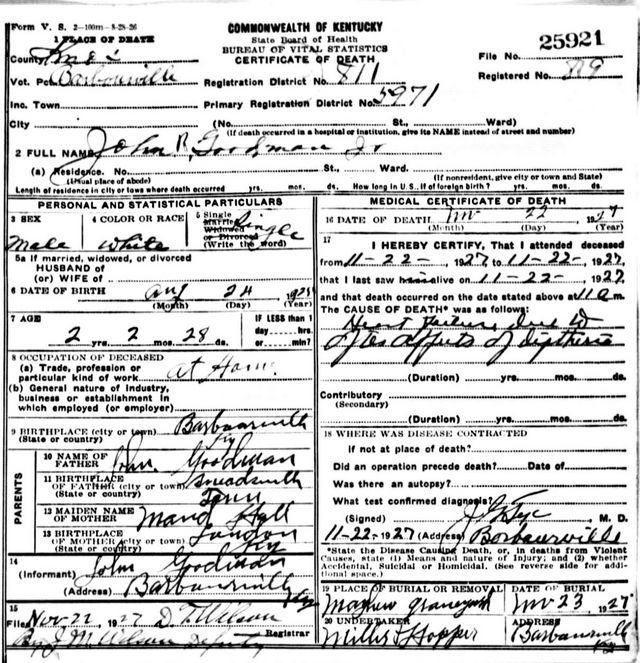 Form V. S. 2-100m-8-28-26
COMMONWEALTH OF KENTUCKY
State Board of Health
BUREAU OF VITAL STATISTICS
CERTIFICATE OF DEATH
1 PLACE OF DEATH
County Knox
Vot. Pct. Barbourville
Inc. Town
City
File No. 25921
Registered No. 819
Registration District No. 811
Primary Registration District No. 5971
(No. St., Ward)
(If death occurred in a hospital or institution, give its NAME instead of street and number)
2 FULL NAME John R. Goodman Jr
(a) Residence. No. St., Ward.
(Usual place of abode) (If nonresident, give city or town and State)
Length of residence in city or town where death occurred yrs. mos. ds. How long in U. S., if of foreign birth? yrs. mos. ds.
PERSONAL AND STATISTICAL PARTICULARS
3 SEX
Male
4 COLOR OR RACE
White
5 Single
Married
Widowed
or Divorced
(Write the word)
Single
5a If married, widowed, or divorced
HUSBAND of
(or) WIFE of
6 DATE OF BIRTH Aug 24 1925
(Month) (Day) (Year)
7 AGE
2 yrs. 2 mos. 28 ds.
IF LESS than 1
day ----- hrs.
or ----- min?
8 OCCUPATION OF DECEASED
(a) Trade, profession or
particular kind of work At Home
(b) General nature of Industry,
business or establishment in
which employed (or employer)
9 BIRTHPLACE (city or town) Barbourville
(State or country) Ky
PARENTS
10 NAME OF
FATHER John Goodman
11 BIRTHPLACE
OF FATHER (city or town)
(State or country) Tenn
12 MAIDEN NAME
OF MOTHER Hall
13 BIRTHPLACE
OF MOTHER London
(State or country) Ky
14
(Informant) John Goodman
(Address) Barbourville Ky
15
Filed Nov-22 1927 D. T. Wilson
Registrar
By J. M. Wilson Deputy
MEDICAL CERTIFICATE OF DEATH
16 DATE OF DEATH Nov 22 1927
(Month) (Day) (Year)
17
I HEREBY CERTIFY, That I attended deceased
from 11-22- 1927, to 11-22-, 1927,
that I last saw him alive on 11-22-, 1927,
and that death occurred on the date stated above at 11 a m.
The CAUSE OF DEATH* was as follows:
Heart failure due to
after affects of diptheria
(Duration) yrs. mos. ds.
Contributory
(Secondary)
(Duration) yrs. mos. ds.
18 WHERE WAS DISEASE CONTRACTED
If not at place of death?
Did an operation precede death? Date of
Was there an autopsy?
What test confirmed diagnosis?
(Signed) M. D.
11-22-1927 (Address) Barbourville
*State the Disease Causing Death, or, in deaths from Violent
Causes, state (1) Means and nature of Injury; and (2) whether
Accidental, Suicidal or Homicidal. (See reverse side for addi-
tional space.)
19 PLACE OF BURIAL OR REMOVAL
graveyard
DATE OF BURIAL
Nov 23 1927
20 UNDERTAKER
Miller & Hopper
ADDRESS
Barbourville
Ky